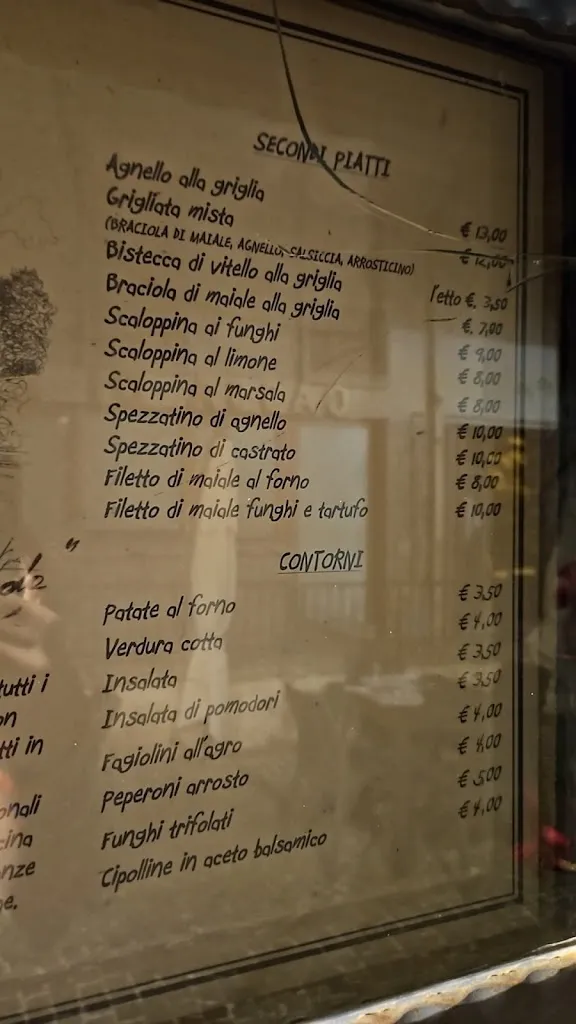 SECONDI PIATTI
Agnello alla griglia € 13,00
Grigliata mista € 12,00
(BRACIOLA DI MAIALE, AGNELLO, SALSICCIA, ARROSTICINO)
Bistecca di vitello alla griglia l'etto €. 3,50
Braciola di maiale alla griglia €. 7,00
Scaloppina ai funghi € 9,00
Scaloppina al limone € 8,00
Scaloppina al marsala € 8,00
Spezzatino di agnello € 10,00
Spezzatino di castrato € 10,00
Filetto di maiale al forno € 8,00
Filetto di maiale funghi e tartufo € 10,00
CONTORNI
Patate al forno € 3,50
Verdura cotta € 4,00
Insalata € 3,50
Insalata di pomodori € 3,50
Fagiolini all'agro € 4,00
Peperoni arrosto € 4,00
Funghi trifolati € 5,00
Cipolline in aceto balsamico € 4,00
tutti i
on
tti in
onali
cina
nze